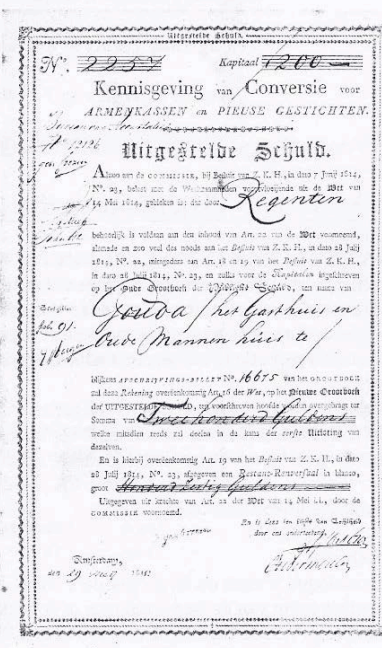 Uitgestelde Schuld.
N°. 2257 Kapitaal 1200
Kennisgeving van Conversie voor
ARMENKASSEN en PIEUSE GESTICHTEN.
N° 12126
Uitgestelde Schuld.
Alzoo aan de COMMISSIE, bij Besluit van Z. K. H., in dato 7 Junij 1814,
N°. 23, belast met de Werkzaamheden voortvloeijende uit de WET van
14 Mei 1814, gebleken is: dat door
Regenten
behoorlijk is voldaan aan den inhoud van Art. 22 van de WET voornoemd,
alsmede en zoo veel des noods aan het Besluit van Z. K. H., in dato 28 Julij
1814, N°. 22, mitsgaders aan Art. 18 en 19 van het Besluit van Z. K. H.,
in dato 28 Julij 1814, N°. 23, en zulks voor de Kapitalen ingeschreven
op het Oude Grootboek der SCHULD, ten name van
Gouda / het Gasthuis en
Oude Mannen huis te /
fol. 91.
blijkens AFSCHRIJVINGS-BILLET N°. 16675 van het GROOTBOEK
zal deze Rekening overeenkomstig Art. 26 der Wet, op het Nieuwe Grootboek
der UITGESTELDE SCHULD, ten voorschreven hoofde worden overgebragt ter
Somma van Twee honderd Guldens
welke mitsdien reeds zal deelen in de kans der eerste Uitloting van
dezelven.
En is hierbij overeenkomstig Art. 19 van het Besluit van Z. K. H., in dato
28 Julij 1814, N°. 23, afgegeven een Restant-Renversaal in blanco,
groot Guldens
Uitgegeven uit krachte van Art. 22 der WET van 14 Mei 1814, door de
COMMISSIE voornoemd.
door ons onderteekend.
Amsterdam,
den 29